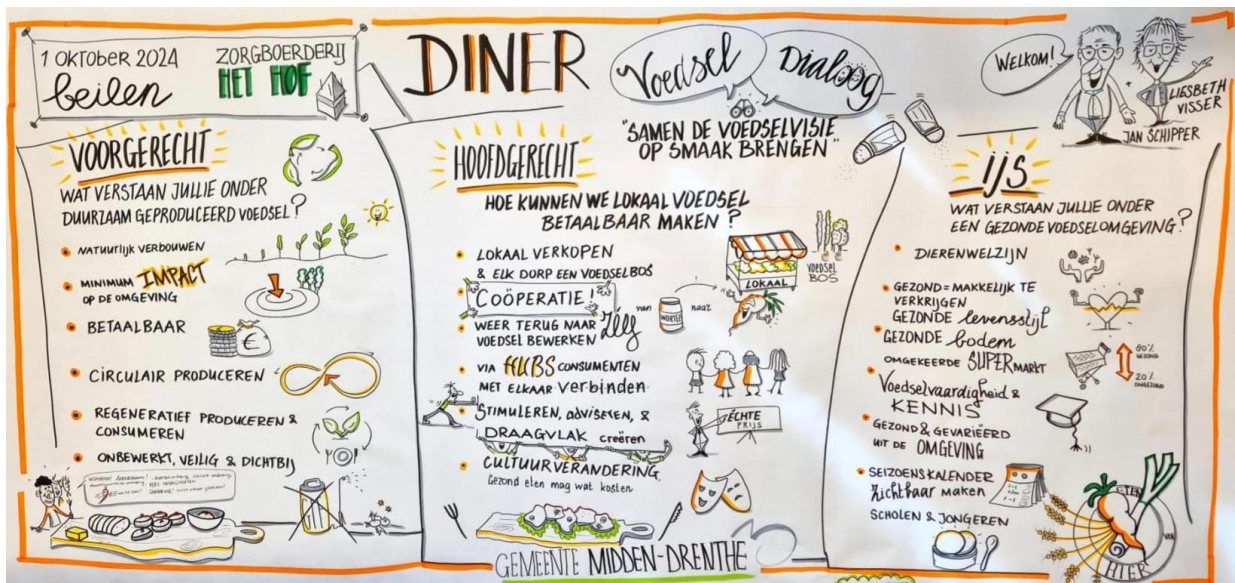 1 OKTOBER 2024
beilen
ZORGBOERDERIJ
HET HOF
DINER
Voedsel
Dialoog
"SAMEN DE VOEDSELVISIE
OP SMAAK BRENGEN"
WELKOM!
+ LIESBETH
VISSER
JAN SCHIPPER
VOORGERECHT
WAT VERSTAAN JULLIE ONDER
DUURZAAM GEPRODUCEERD VOEDSEL?
NATUURLIJK VERBOUWEN
MINIMUM IMPACT
OP DE OMGEVING
BETAALBAAR
€
CIRCULAIR PRODUCEREN
REGENERATIEF PRODUCEREN &
CONSUMEREN
ONBEWERKT, VEILIG & DICHTBIJ
HOOFDGERECHT
HOE KUNNEN WE LOKAAL VOEDSEL
BETAALBAAR MAKEN?
LOKAAL VERKOPEN
& ELK DORP EEN VOEDSELBOS
LOKAAL
VOEDSEL
BOS
COÖPERATIE!
WEER TERUG NAAR Zelf
VOEDSEL BEWERKEN
van
WORTEL
naar
VIA HUBS CONSUMENTEN
MET ELKAAR verbinden
STIMULEREN, adviseren, &
DRAAGVLAK creëren
ECHTE
PRIJS
CULTUURVERANDERING
Gezond eten mag wat kosten
GEMEENTE MIDDEN-DRENTHE
ijs
WAT VERSTAAN JULLIE ONDER
EEN GEZONDE VOEDSELOMGEVING?
DIERENWELZIJN
GEZOND = MAKKELIJK TE
VERKRIJGEN
GEZONDE levensstijl
GEZONDE bodem
OMGEKEERDE SUPERMARKT
80%
GEZOND
20%
ONGEZOND
Voedselvaardigheid &
KENNIS
GEZOND & GEVARIËERD
UIT DE OMGEVING
SEIZOENSKALENDER
Zichtbaar maken
SCHOLEN & JONGEREN
ETEN
VAN
HIER